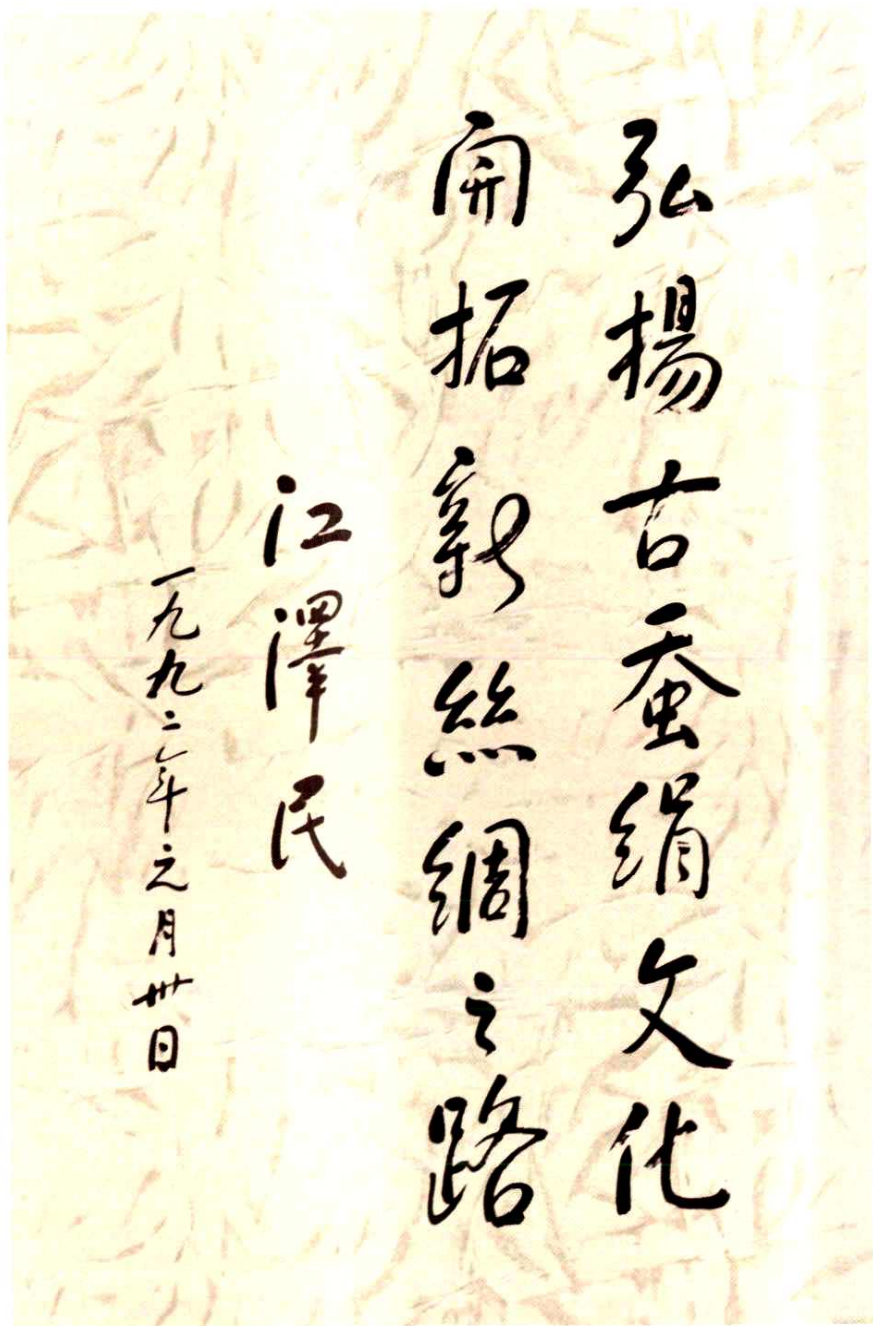 弘揚古蚕绢文化
開拓新絲綢之路
江澤民
一九九二年元月卅日